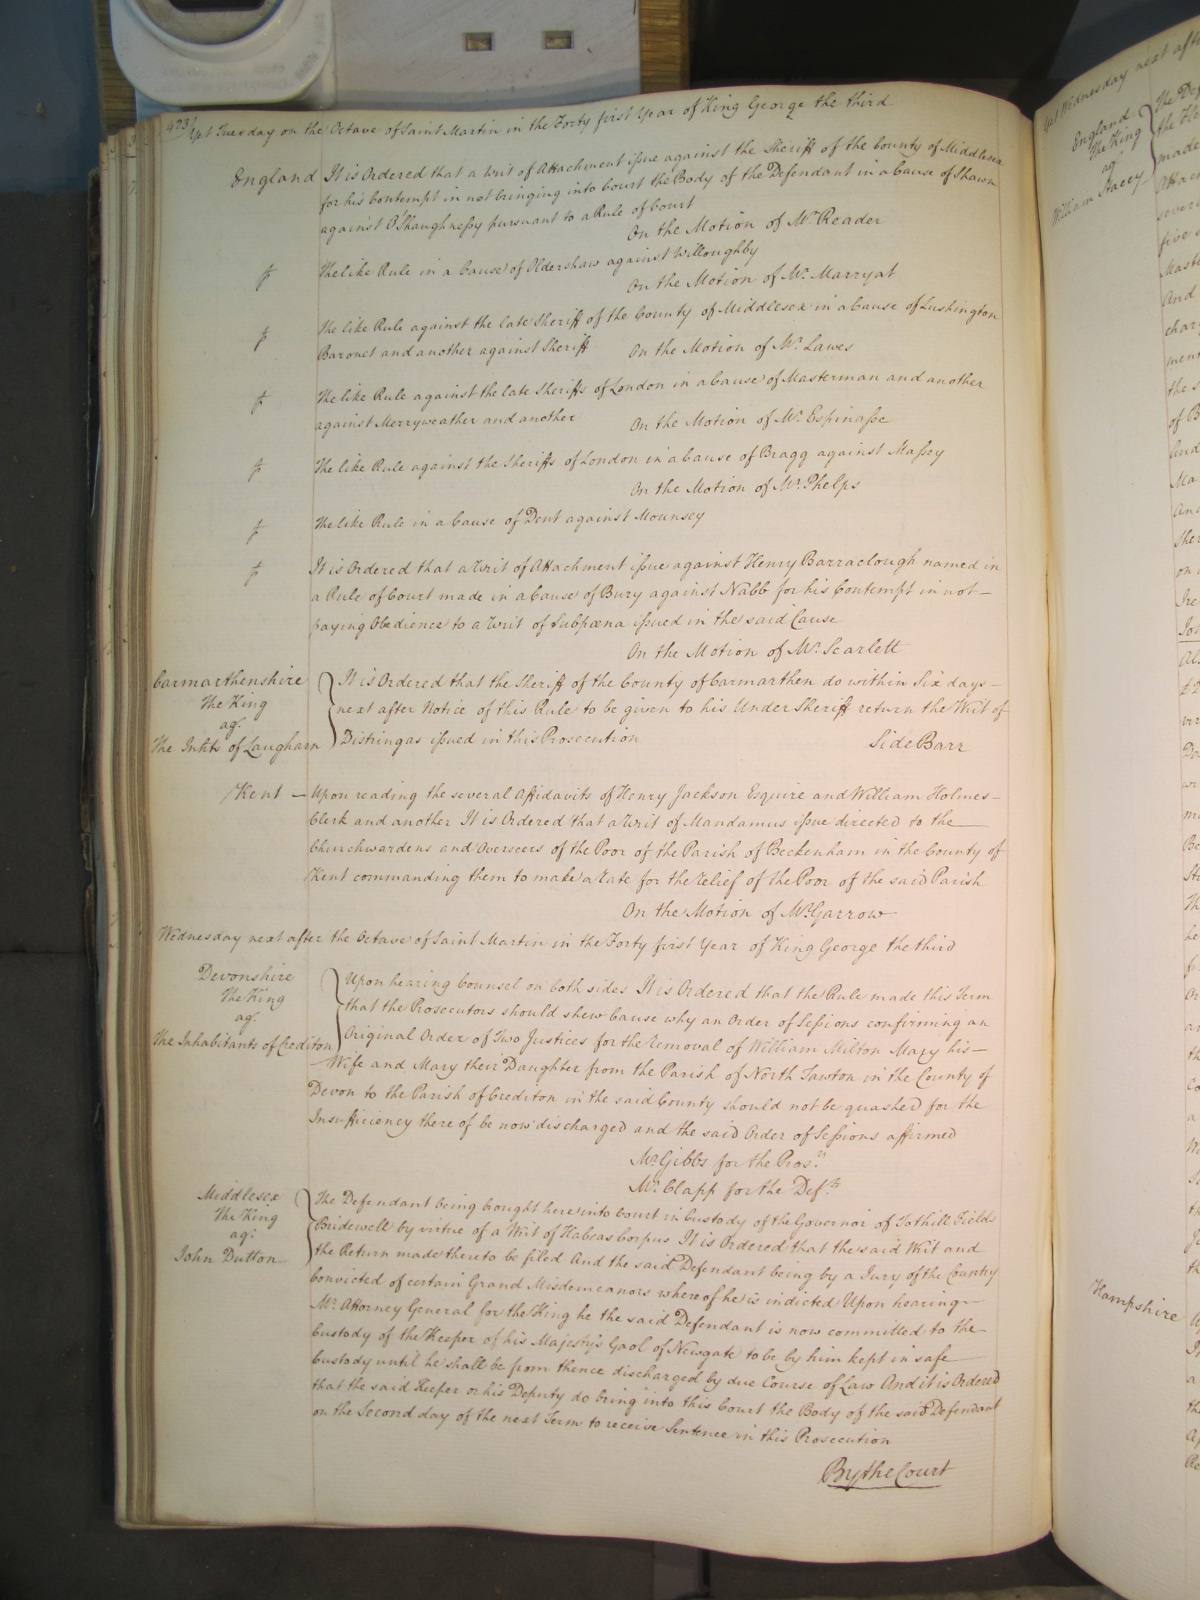 423/
Yet Tuesday on the Octave of Saint Martin in the Forty first Year of King George the third
England It is Ordered that a Writ of Attachment issue against the Sheriff of the County of Middlesex
for his Contempt in not bringing into Court the Body of the Defendant in a Cause of Shawn
against O'Shaughnessy pursuant to a Rule of Court
On the Motion of Mr. Reader
The like Rule in a Cause of Oldershaw against Willoughby
On the Motion of Mr. Marryat
The like Rule against the late Sheriff of the County of Middlesex in a Cause of Lushington
Baronet and another against Sheriff On the Motion of Mr. Lawes
The like Rule against the late Sheriffs of London in a Cause of Masterman and another
against Merryweather and another On the Motion of Mr. Espinasse
The like Rule against the Sheriffs of London in a Cause of Bragg against Massey
On the Motion of Mr. Phelps
The like Rule in a Cause of Dent against Mounsey
It is Ordered that a Writ of Attachment issue against Henry Barraclough named in
a Rule of Court made in a Cause of Bury against Nabb for his Contempt in not
paying Obedience to a Writ of Subpœna issued in the said Cause
On the Motion of Mr. Scarlett
Carmarthenshire
The King
agt.
The Inhts of Laugharn
It is Ordered that the Sheriff of the County of Carmarthen do within Six days
next after Notice of this Rule to be given to his Under Sheriff return the Writ of
Distringas issued in this Prosecution Side Barr
Kent — Upon reading the several Affidavits of Henry Jackson Esquire and William Holmes
Clerk and another It is Ordered that a Writ of Mandamus issue directed to the
Churchwardens and Overseers of the Poor of the Parish of Beckenham in the County of
Kent commanding them to make a Rate for the relief of the Poor of the said Parish
On the Motion of Mr. Garrow
Wednesday next after the Octave of Saint Martin in the Forty first Year of King George the third
Devonshire
The King
agt.
The Inhabitants of Crediton
Upon hearing Counsel on both sides It is Ordered that the Rule made this Term
that the Prosecutors should shew Cause why an Order of Sessions confirming an
Original Order of Two Justices for the removal of William Milton Mary his
Wife and Mary their Daughter from the Parish of North Tawton in the County of
Devon to the Parish of Crediton in the said County should not be quashed for the
Insufficiency thereof be now discharged and the said Order of Sessions affirmed
Mr. Gibbs for the Pros.rs
Mr. Clapp for the Def.ts
Middlesex
The King
agt.
John Dutton
The Defendant being brought here into Court in Custody of the Governor of Tothill Fields
Bridewell by virtue of a Writ of Habeas Corpus It is Ordered that the said Writ and
the Return made thereto be filed And the said Defendant being by a Jury of the Country
Convicted of certain Grand Misdemeanors whereof he is indicted Upon hearing
Mr. Attorney General for the King he the said Defendant is now committed to the
Custody of the Keeper of his Majesty's Gaol of Newgate to be by him kept in safe
Custody until he shall be from thence discharged by due Course of Law And it is Ordered
that the said Keeper or his Deputy do bring into this Court the Body of the said Defendant
on the Second day of the next Term to receive Sentence in this Prosecution
By the Court
Yet Wednesday next after
England
The King
agt.
William Stacey
Hampshire